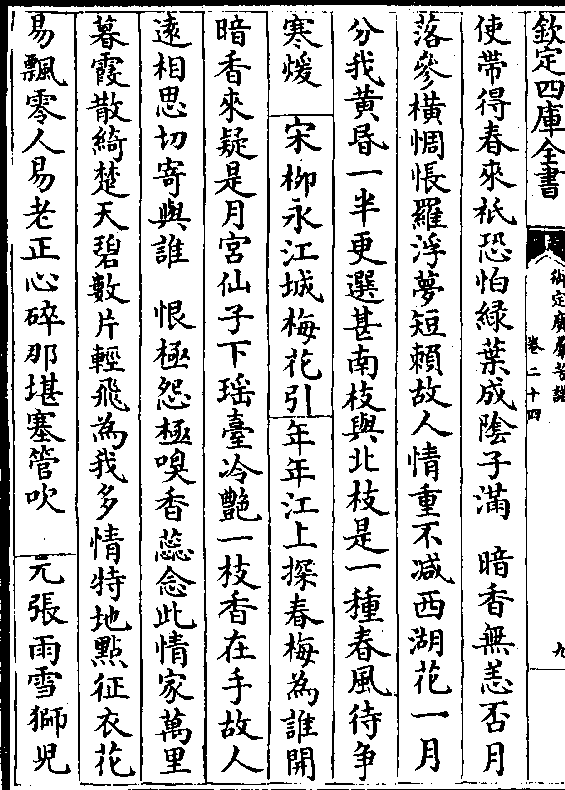 欽定四庫全書
御定廣羣芳譜
卷二十四
九
使帶得春來祇恐怕綠葉成陰子滿　暗香無恙否月
落參橫惆悵羅浮夢短賴故人情重不減西湖花一月
分我黃昏一半更選甚南枝與北枝是一種春風待争
寒煖　宋柳永江城梅花引年年江上探春梅為誰開
暗香來疑是月宮仙子下瑤臺冷艷一枝香在手故人
遠相思切寄與誰　恨極怨極嗅香蕊念此情家萬里
暮霞散綺楚天碧數片輕飛為我多情特地點征衣花
易飄零人易老正心碎那堪塞管吹　元張雨雪獅兒